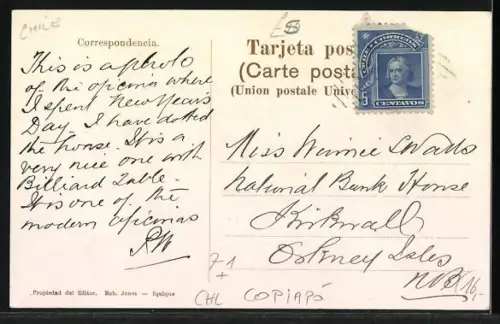 CHILE
Correspondencia.
This is a photo
of the oficina where
I spent New Year's
Day. I have dotted
the house. It is a
very nice one with
Billiard Table.
It is one of the
modern oficinas
PW
Tarjeta pos
(Carte posta
(Union postale Unive
CORREOS
5 CENTAVOS
Miss Winnie Watts
National Bank House
Kirkwall
Orkney Isles
NB
7-1
+
CHL COPIAPÓ
16,-
Propiedad del Editor. Rob. Jones - Iquique